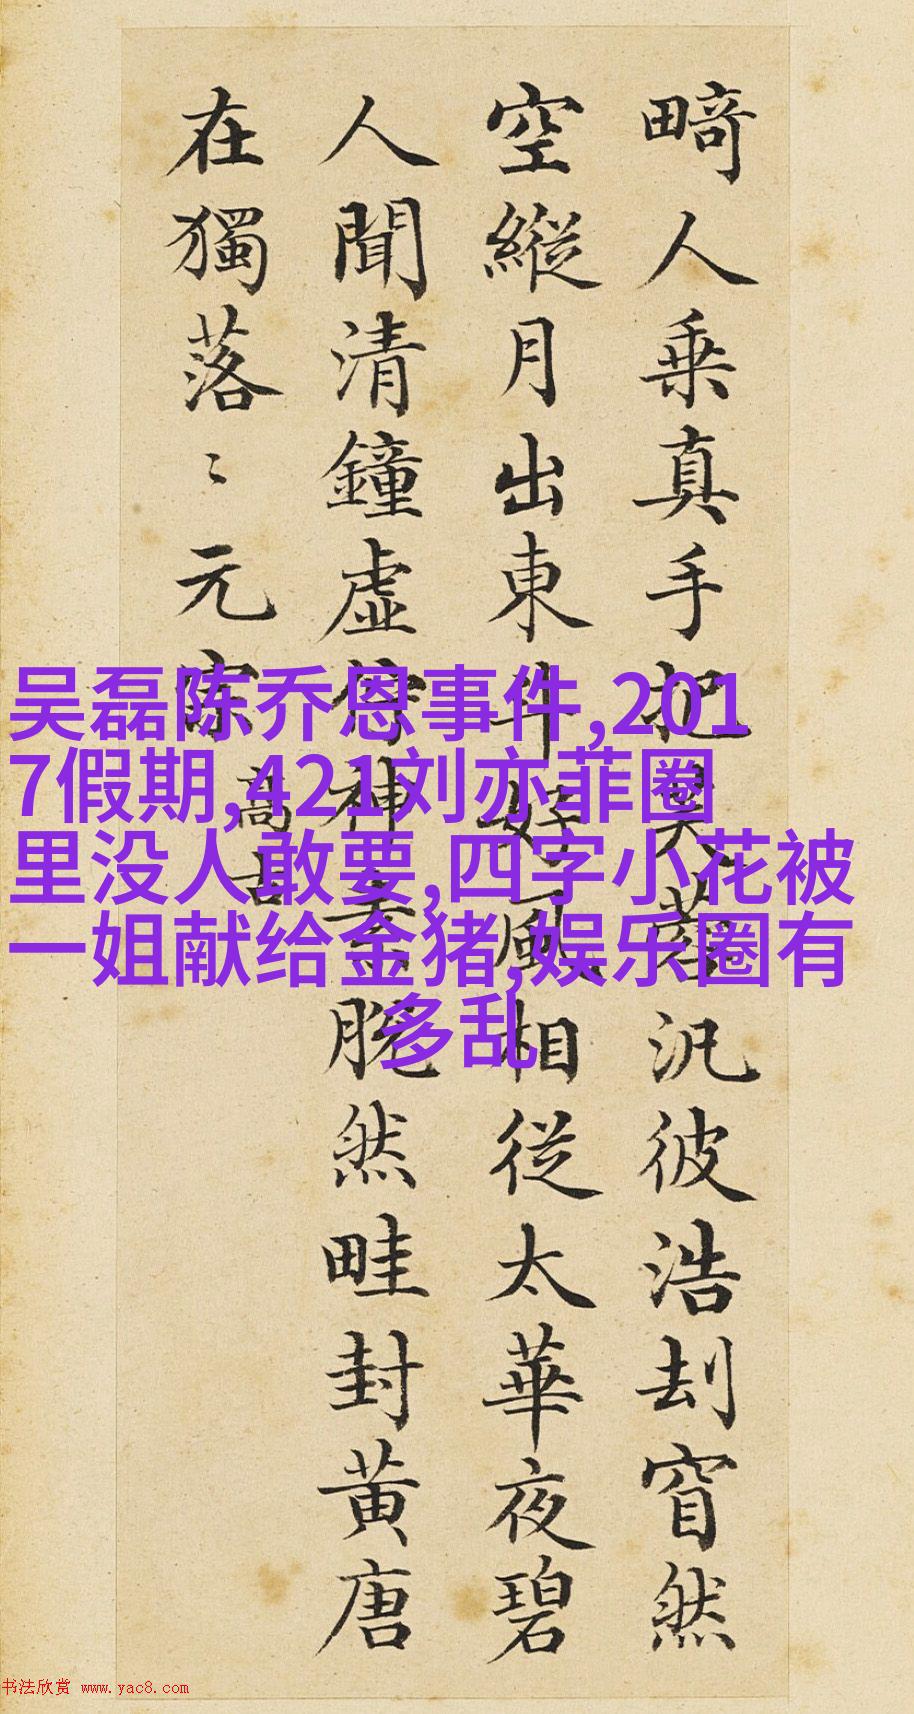 畸人乗真手把芙蓉汎彼浩刦窅然
空縱月出東斗好風相從太華夜碧
人聞清鐘虛佇神素脫然畦封黃唐
在獨落〻元宗
高古
吴磊陈乔恩事件,201
7假期,421刘亦菲圈
里没人敢要,四字小花被
一姐献给金猪,娱乐圈有
多乱
书法欣赏 www.yac8.com